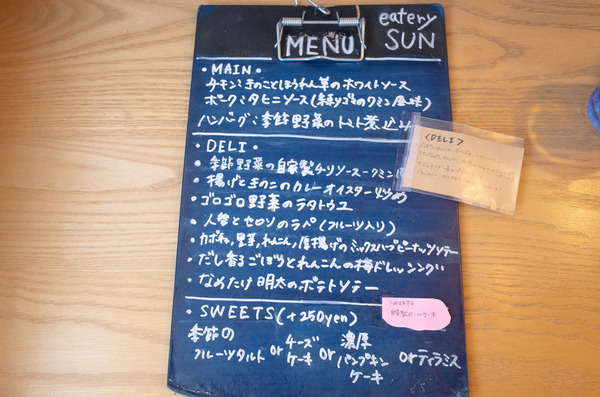 eatery
SUN
MENU
・MAIN・
チキン:きのことほうれん草のホワイトソース
ポーク:タヒニソース(練りゴマのクミン風味)
ハンバーグ:季節野菜のトマト煮込み
・DELI・
・季節野菜の自家製チリソースークミン
・揚げときのこのカレーオイスター炒め
・ゴロゴロ野菜のラタトゥユ
・人参とセロリのラペ(フルーツ入り)
・カボチャ,里芋,れんこん,厚揚げのミックスハーブピーナッツソテー
・だし香るごぼうとれんこんの梅ドレッシング
・なめたけ明太のポテトソテー
〈DELI〉
・SWEETS(+250yen)
季節の
フルーツタルト or チーズケーキ or 濃厚パンプキンケーキ or ティラミス
SWEETS